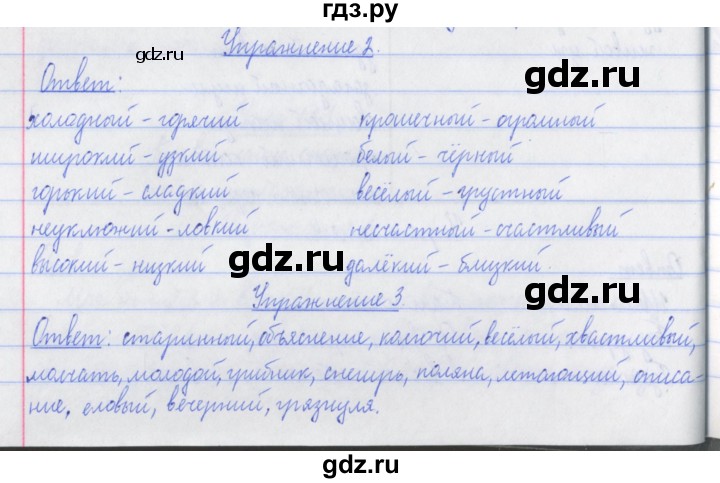 гдз.ру
gdz.ru gdz.ru
Упражнение 2.
Ответ:
gdz.ru
холодный - горячий крошечный - огромный
широкий - узкий белый - чёрный
горький - сладкий весёлый - грустный
неуклюжий - ловкий несчастный - счастливый
высокий - низкий далёкий - близкий.
gdz.ru gdz.ru
Упражнение 3.
Ответ: старинный, объяснение, колючий, весёлый, хвастливый,
молчать, молодой, грибник, снегирь, поляна, летающий, описа-
ние, еловый, вечерний, грязнуля.
gdz.ru gdz.ru
gdz.ru